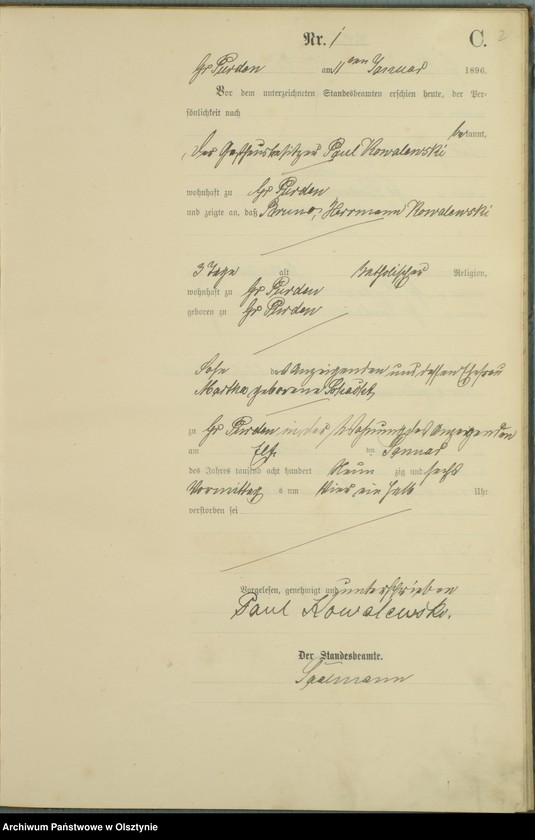 Nr. 1 C. 2
Gr Purden am 11 ten Januar 1896.
Vor dem unterzeichneten Standesbeamten erschien heute, der Per-
sönlichkeit nach
bekannt,
der Gasthausbesitzer Paul Kowalewski
wohnhaft zu Gr Purden
und zeigte an, daß Bruno, Herrmann Kowalewski
3 Tage alt katholischer Religion,
wohnhaft zu Gr Purden
geboren zu Gr Purden
Sohn des Anzeigenden und dessen Ehefrau
Martha geborene
zu Gr Purden in der Wohnung des Anzeigenden
am Elf ten Januar
des Jahres tausend acht hundert Neun zig und sechs
Vormittag s um Vier ein halb Uhr
verstorben sei
Vorgelesen, genehmigt und unterschrieben
Paul Kowalewski.
Der Standesbeamte.
Saalmann
Archiwum Państwowe w Olsztynie